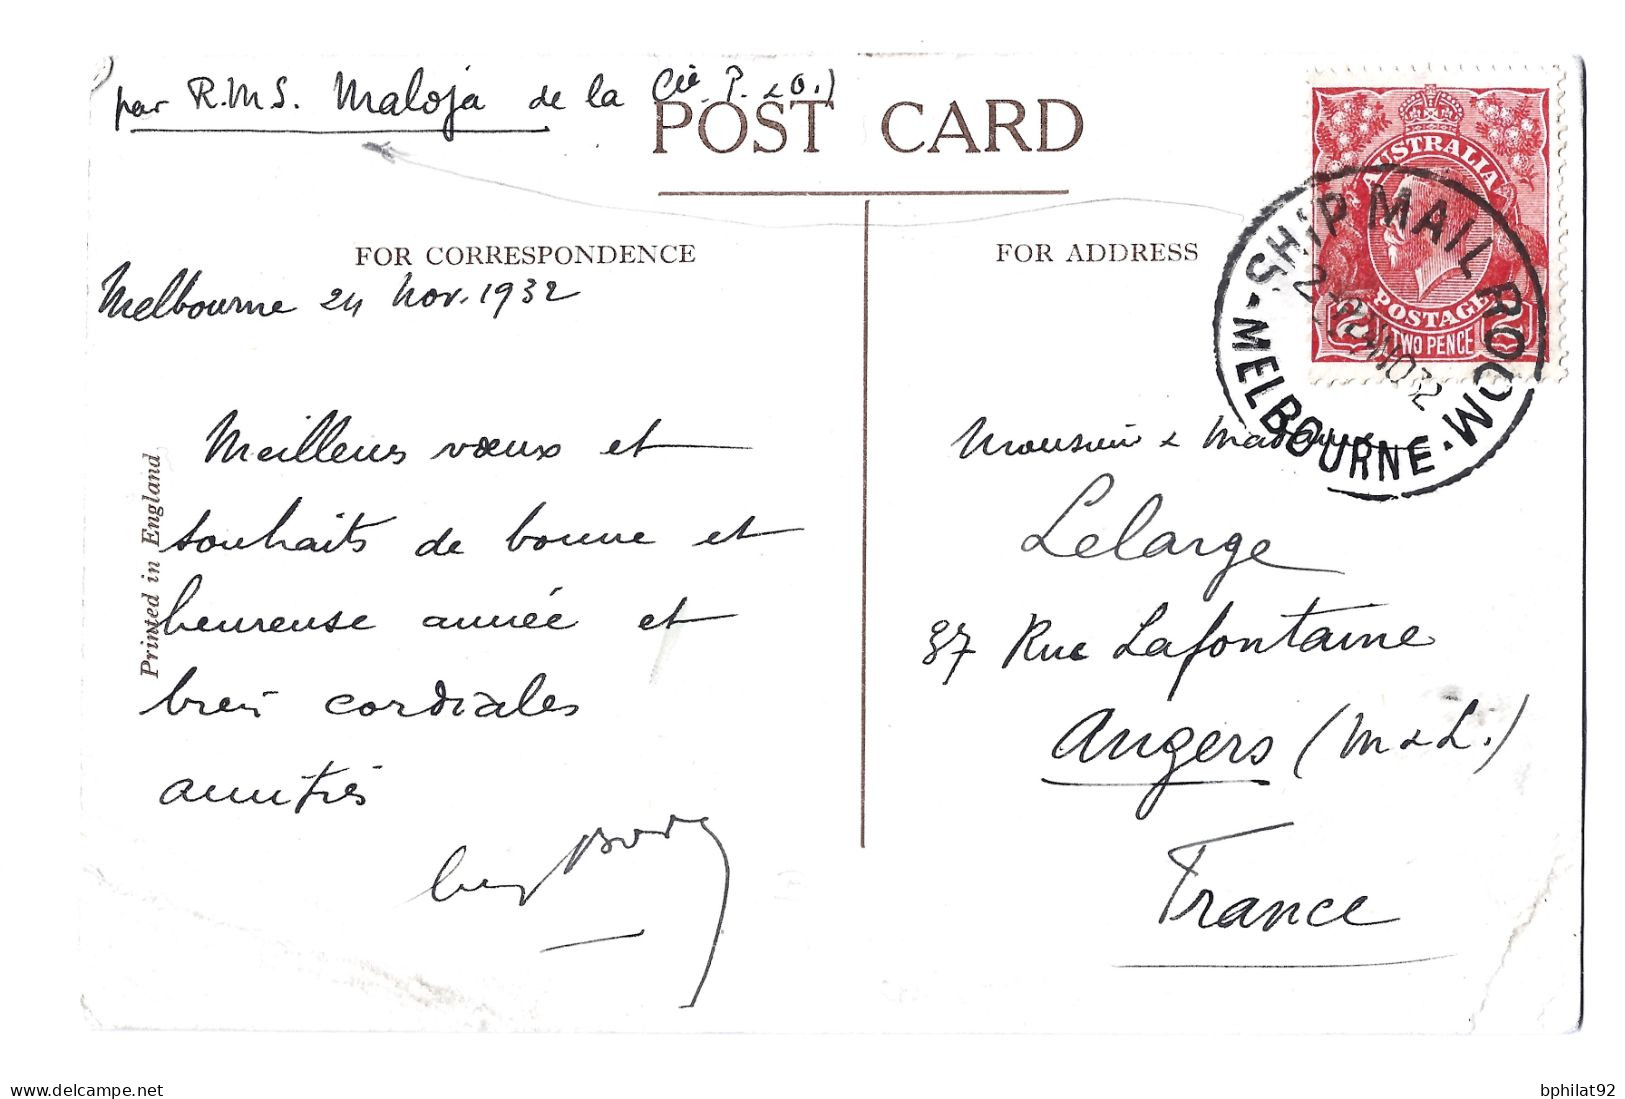 par R.M.S. Maloja de la Cie P. & O.)
POST CARD
FOR CORRESPONDENCE
FOR ADDRESS
Melbourne 24 Nov. 1932
Meilleurs vœux et
souhaits de bonne et
heureuse année et
bien cordiales
amitiés
Printed in England
AUSTRALIA
POSTAGE
2 2
TWO PENCE
SHIP MAIL ROOM
MELBOURNE
24 NO 32
Monsieur & Madame
Lelarge
37 Rue Lafontaine
Angers (M & L.)
France
delcampe.net
bphilat92